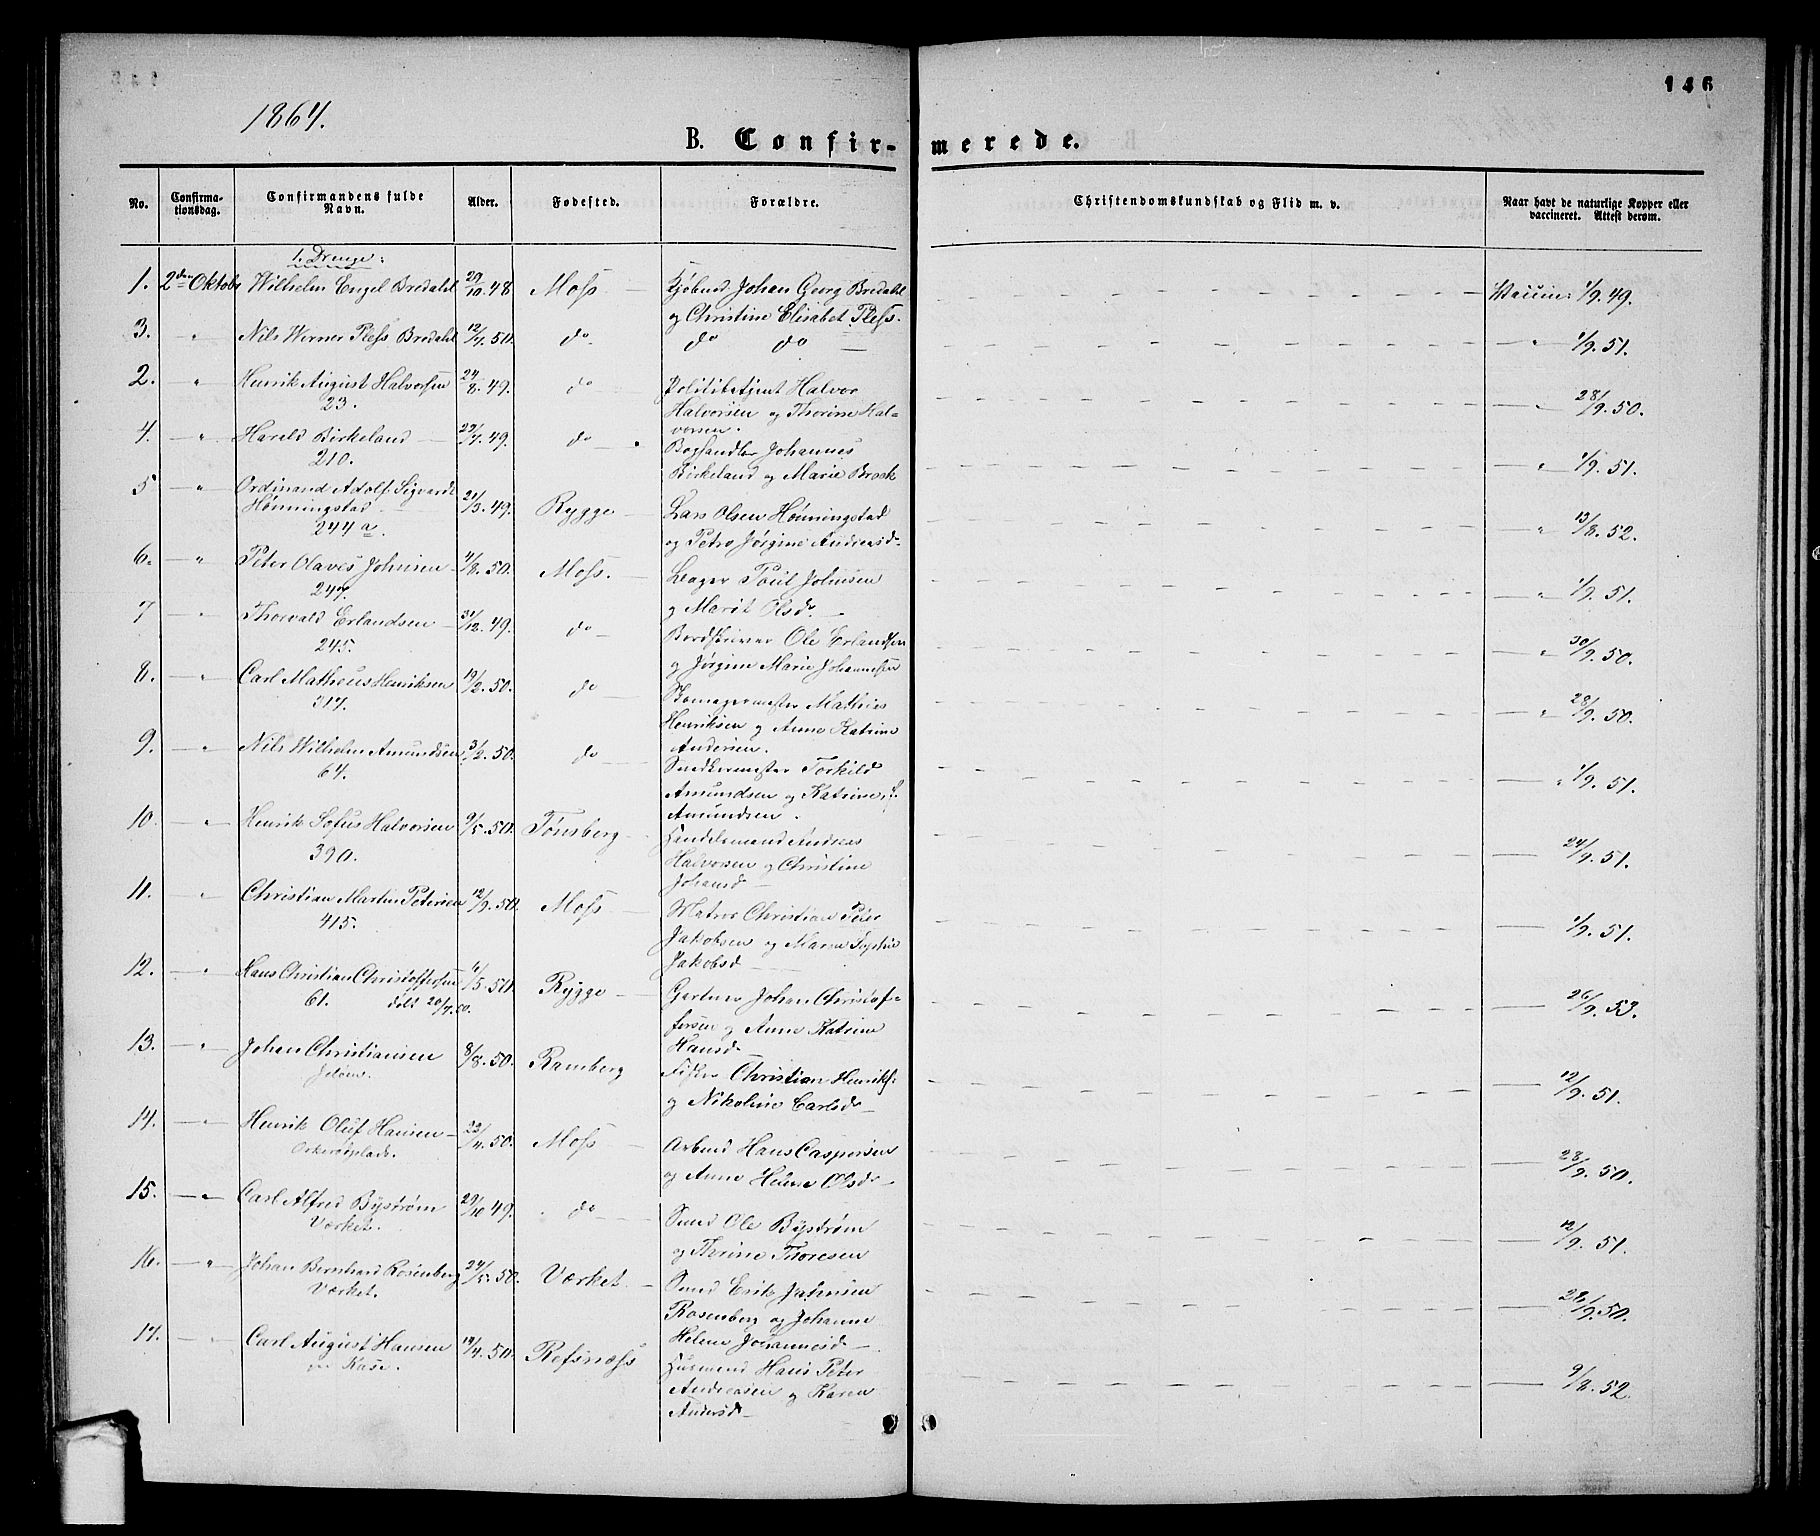 146
1864.
B. Confirmerede.
No. Confirmationsdag. Confirmandens fulde Navn. Alder. Fødested. Forældre. Christendomskundskab og Flid m. v. Naar havt de naturlige Kopper eller vaccineret. Attest derom.
1. Drenge:
1. 2den Oktobr Wilhelm Engel Bredahl 29/10.48 Moss Kjøbmd Johan Georg Bredahl Vaccin: 1/9.49.
og Christine Elisabet Pless.
3. " Nils Werner Pless Bredahl 12/7.50. do. do do " 1/9.51.
2. " Henrik August Halvorsen 24/8.49. do Politibetjent Halvor " 28/9.50.
23. Halvorsen og Thorine Hal-
vorsen.
4. " Harald Birkeland 29/7.49. do Boghandler Johannes " 1/9.51.
210. Birkeland og Marie Brock
5 " Ordinand Adolf Sigvardt
Hønningstad 21/3.49. Rygge Lars Olsen Hønningstad " 13/8.52.
244 a. og Petro Jørgine Andreasd.
6. " Peter Olaves Johnsen 4/8.50. Moss. Leager Poul Johnsen " 1/9.51.
247. og Marit Olsdr
7 " Thorvald Erlandsen 31/12.49. do Bordskriver Ole Erlandsen " 30/9.50.
245. og Jørgine Marie Johannesen
8. " Carl Matheus Henriksen 19/2.50. do Skomagermester Mathies " 28/9.50.
317. Henriksen og Anne Katrine
Andersen.
9. " Nils Wilhelm Amundsen 3/2.50. do Snedkermester Torkild " 1/9.51.
64. Amundsen og Katrine f.
Amundsen.
10. " Henrik Sofus Halvorsen 9/5.50. Tønsberg Handelsmand Andreas 24/9.51.
390. Halvorsen og Christine
Johansd
11. " Christian Martin Petersen 12/9.50. Moss Matros Christian Peter 1/9.51.
415. Jakobsen og Maren Sophie
Jakobsd
12. " Hans Christian Christoffersen 6/5.50. Rygge Gartner Johan Christof- 26/9.53.
61. døbt 20/7.50. fersen og Anne Katrine
Hansd.
13. " Johan Christiansen 8/8.50. Ramberg Fisker Christian Henriks: 12/9.51.
Jeløen. og Nikoline Carlsdr
14. " Henrik Oluf Hansen 23/4.50. Moss Arbmd Hans Caspersen 28/9.50.
Orkerødplads. og Anne Helene Olsdr
15. " Carl Alfred Byström 29/10 49. do Smed Ole Byström 12/9.51.
Værket. og Thrine Thoresen
16. " Johan Bernhard Rosenberg 24/5.50. Værket Smed Erik Johnsen 28/9.50.
Værket. Rosenberg og Johanne
Helene Johannesd.
17. " Carl August Hansen 19/4.50. Refsnæss Husmand Hans Peter 9/8.52.
Kase. Andreasen og Karen
Andersdr